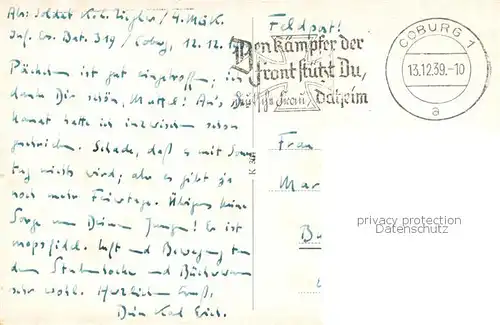 Abs: Soldat Ziegler / 4. M.K.
Inf. Ers. Bat. 319 / Coburg, 12.12.
Feldpost!
Den Kämpfer der
Front stützt Du,
deutsche Frau, daheim
COBURG 1
13.12.39.-10
a
Päckchen ist gut eingetroffen; ich
danke Dir schön, Muttel! An's
hatte ich inzwischen schon
geschrieben. Schade, daß es mit Sonn
tag nichts wird; aber es gibt ja
noch mehr Feiertage. Übrigens keine
Sorge um Deinen Jungen! Er ist
mopsfidel. Luft und Bewegung tun
dem Stubenhocker und Bücherwurm
sehr wohl. Herzlichen Gruß,
Dein Karl Erich.
Frau
Mar
B
privacy protection
Datenschutz